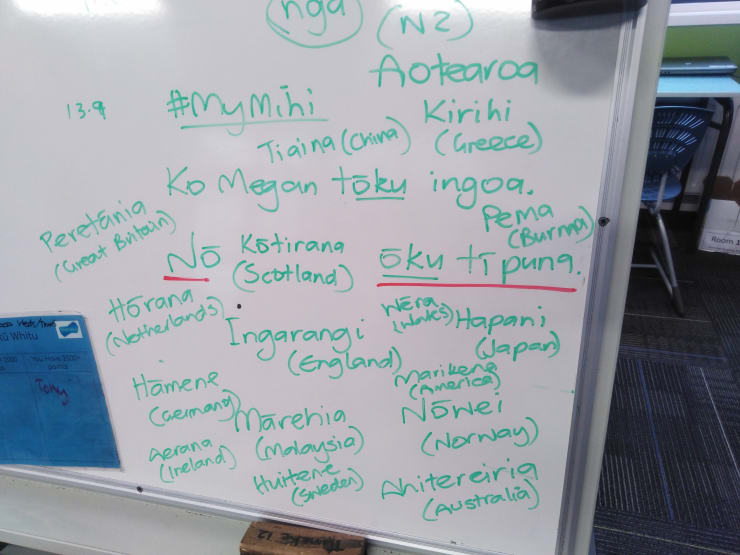 ngā
(NZ)
Aotearoa
13.9
#MyMihi
Kirihi
(Greece)
Tiaina (China)
Ko Megan tōku ingoa.
Pema
(Burma)
Peretānia
(Great Britain)
Nō
Kōtirana
(Scotland)
ōku tīpuna.
Hōrana
(Netherlands)
Ingarangi
(England)
Wēra
(Wales)
Hapani
(Japan)
Marikena
(America)
Hāmene
(Germany)
Mārehia
(Malaysia)
Nōwei
(Norway)
Aerana
(Ireland)
Huitene
(Sweden)
Ahitereiria
(Australia)
Whitu
Tony
Room 1